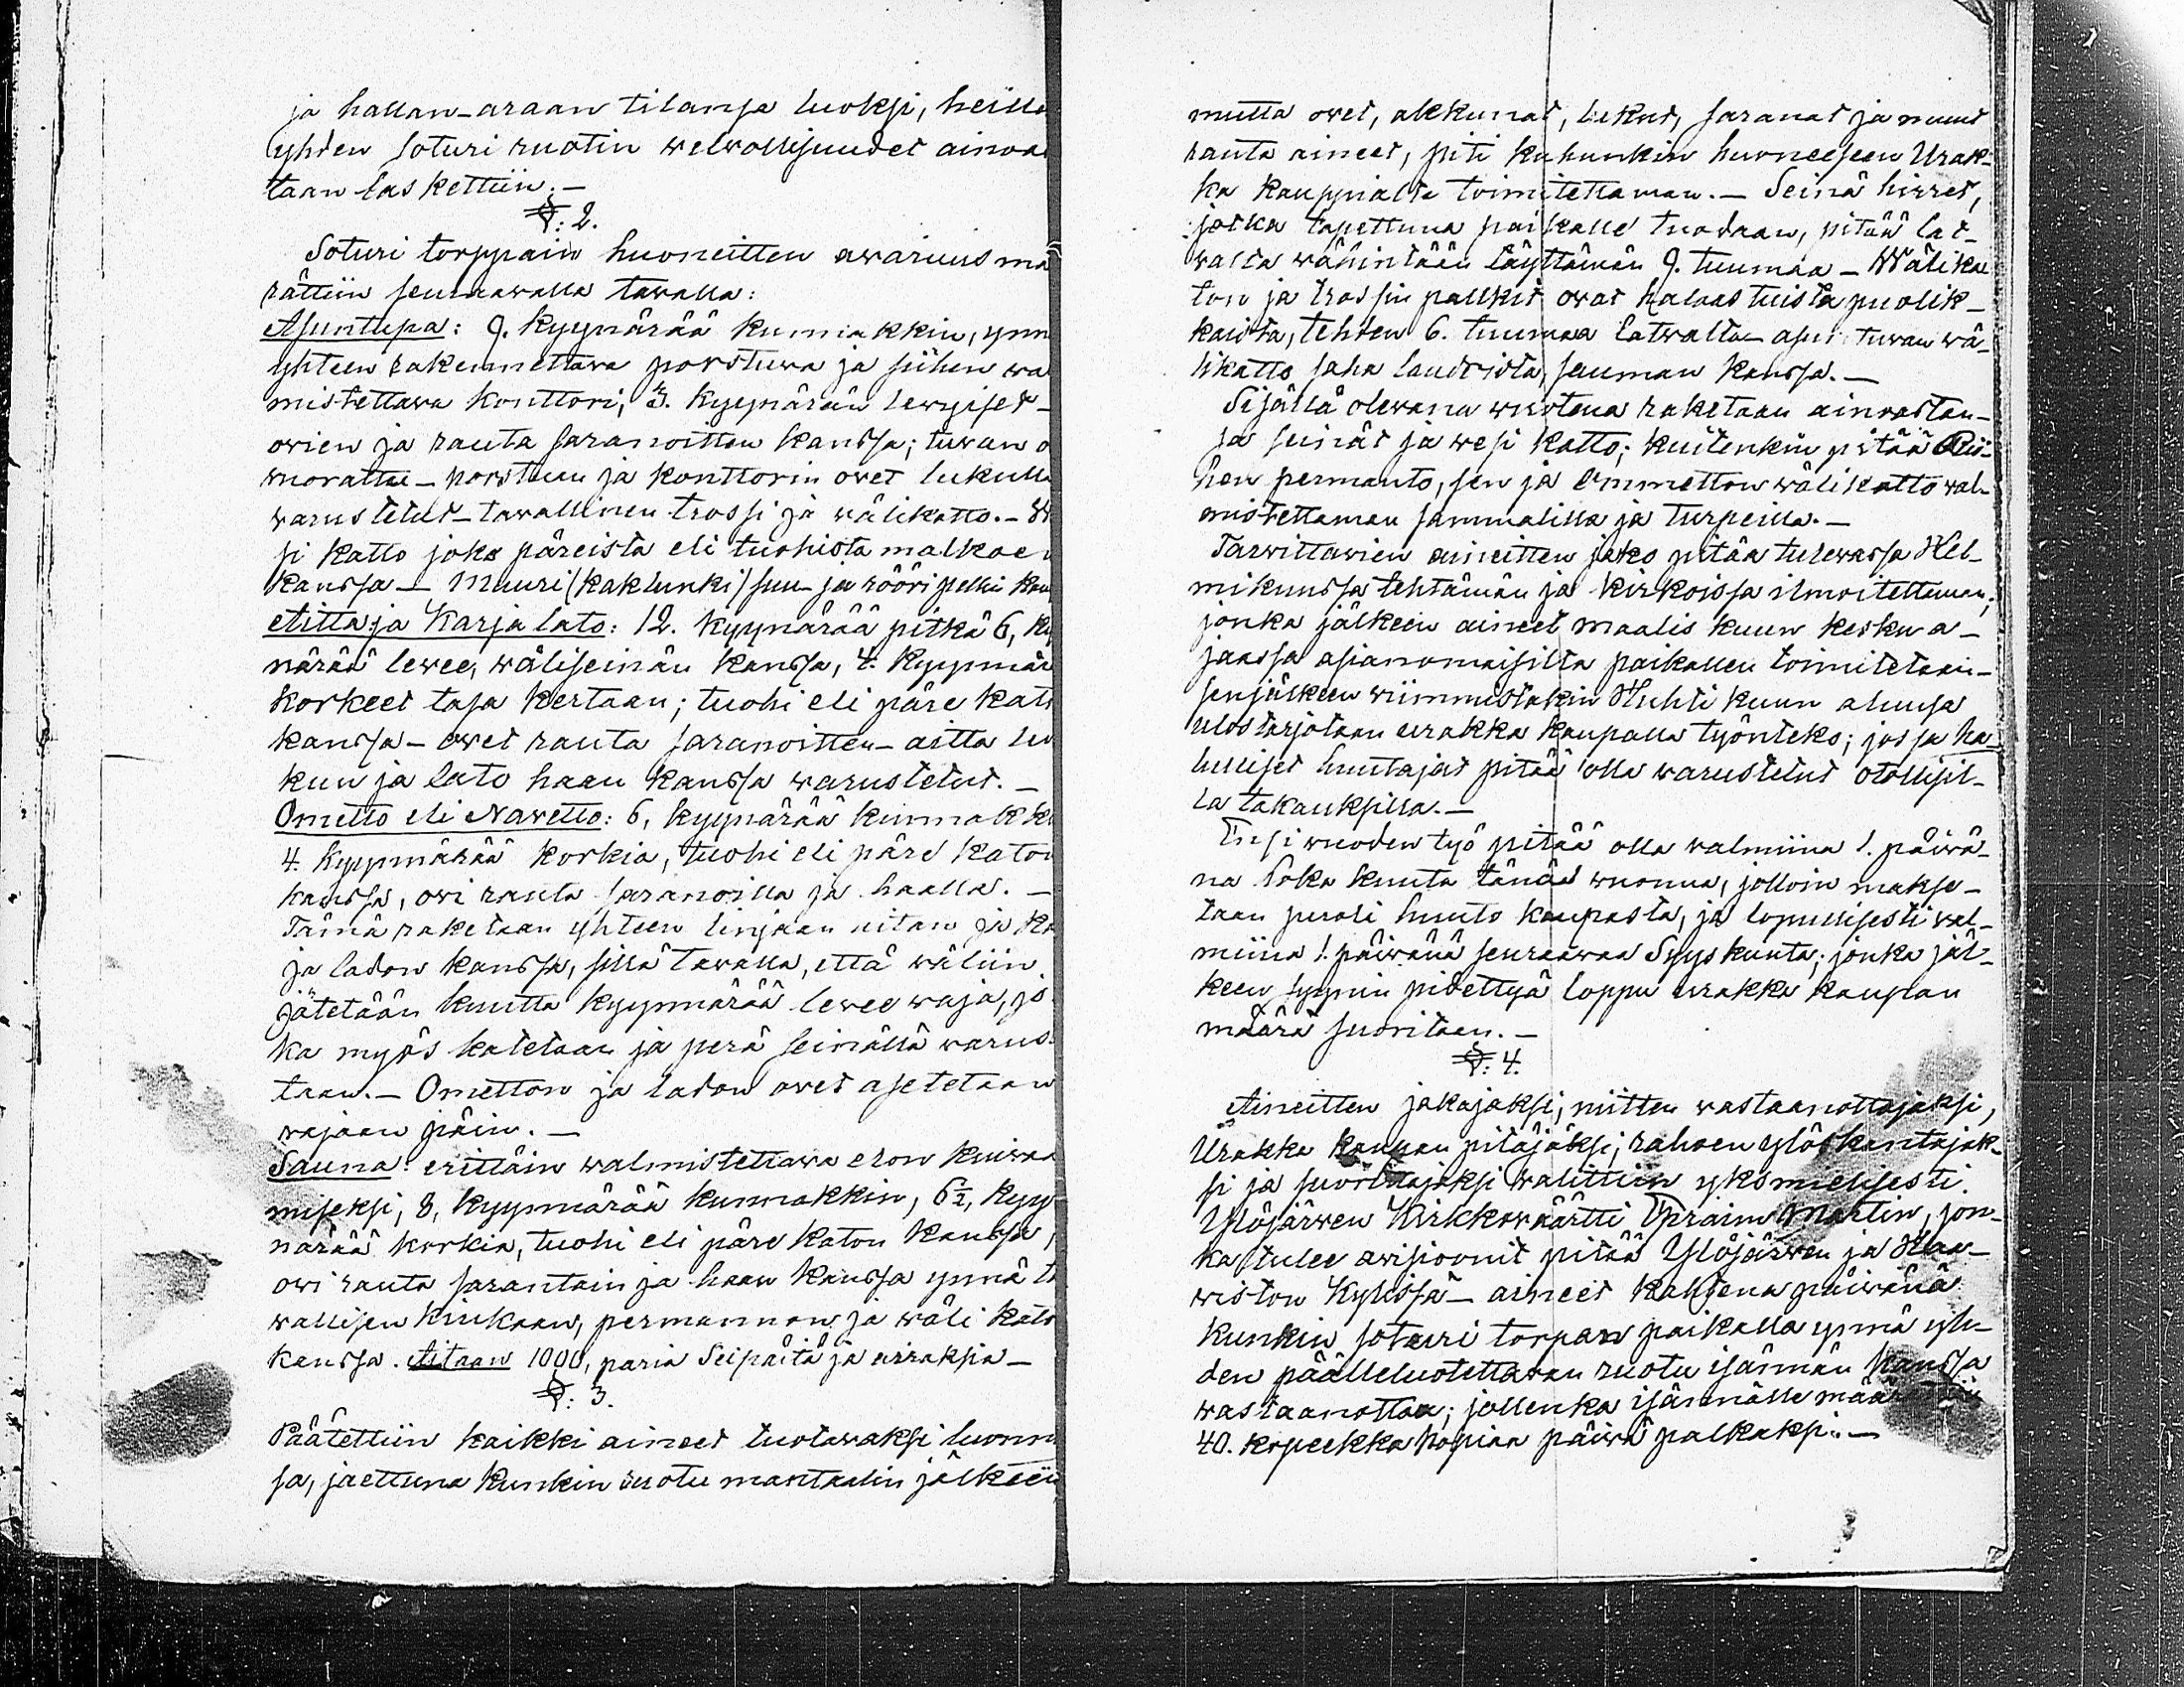 ja hallan-araan tilansa luoksi, heille
yhden soturi ruotin welwollisuudet ainoas
taan laskettiin.—
§: 2.
Soturi torppain huoneitten awaruus mä
rättiin seuraawalla tawalla:
Asuntupa: 9. kyynärää kumiakkin, ynn
yhteen rakennettava porstuwa ja siihen wa
mistettawa konttori, 3. kyynärän lewyiset-
owien ja rauta saranoitten kanssa; tuwan o
wuorattu - porstuan ja konttorin owet lukulla
warustetut - tawallinen trossi ja wälikatto. - We
si katto joko päreista eli tuohista malkoen
kanssa — Muuri (kaklunki) suu- ja rööri pelkin kan
Aitta ja Karja lato: 12. kyynärää pitkä 6, ky
närää lewee, wäliseinän kanssa, 4. kyynnär
korkeet tasa kertaan; tuohi eli päre kato
kanssa - owet rauta saranoitten - aitta lu
kun ja lato haan kanssa warustetut. —
Ometto eli Navetto: 6, kyynärää kummakki
4. kyynnärää korkia, tuohi eli päre katon
kanssa, owi rauta saranoilla ja haalla. —
Tämä raketaan yhteen linjaan aitan ja ka
ja ladon kanssa, sillä tawalla, että wäliin
jätetään kuutta kyynnärää lewee waja, jo
ka myös katetaan ja perä seinällä warus
taan. — Ometton ja ladon owet asetetaan
wajaan päin. —
Sauna: erittäin walmistettawa elon kuiwaa
miseksi, 8, kyynnärää kummakkin, 6½, kyy
närää korkia, tuohi eli päre katon kanssa,
owi rauta sarantain ja haan kanssa ynnä ta
wallisen kiukaan, permannon ja wäli kato
kanssa. Aitaan 1000, paria Seipäitä ja airaksia —
§: 3.
Päätettiin kaikki aineet tuotawaksi luonno
sa, jaettuna kunkin ruotu mantaalin jälkeen
mutta owet, akkunat, lukut, saranat ja muut
rauta aineet, piti kuhunkin huoneeseen Urak-
ka kaupialta toimitettaman. — Seinä hirret,
jotka tapettuna paikalle tuodaan, pitää lat-
wasta wähintään täyttämän 9. tuumaa — Wälika
ton ja trossin palkit owat halaistuista puolik-
kaista, tehden 6. tuumaa latwalta - asun tuwan wä-
likatto saha laudoista, sauman kanssa. —
Sijällä olewana wuotena raketaan ainoastan-
sa seinät ja wesi katto; kuitenkin pitää Rii-
hen permanto, sen ja Ommetton wälikatto wal-
mistettaman sammalilla ja turpeilla. —
Tarwittawien aineitten jako pitää tulewassa Hel-
mikuussa tehtämän ja kirkoissa ilmoitettaman;
jonka jälkeen aineet maalis kuun kesku a-
jaassa asianomaisilta paikallen toimitetaan -
senjälkeen wiimmistakin Huhti kuun alussa
ulostarjotaan urakka kaupalla työnteko; jossa ha-
luuiset huutajat pitää olla warustetut otollisil-
la takauksilla. —
Ensi wuoden työ pitää olla walmiina 1. päiwä-
na loka kuuta tänä wuonna, jolloin makse-
taan puoli huuto kaupasta, ja lopullisesti wal-
miina 1. päiwänä seuraawaa Syys kuuta; jonka jäl-
keen syynin pidettyä loppu urakka kaupan
määrä suoritaan. —
§: 4.
Aineitten jakajaksi, niitten wastaanottajaksi,
Urakka kaupan pitäjäksi; rahaen ylöskantajak-
si ja suorittajaksi walittiin yksmielisesti
Ylöjärwen Kirkkowäärtti Efraim Martin, jon-
ka tulee awisioonit pitää Ylöjärwen ja Haa-
wiston Kylissä — aineet kahtena päiwänä
kunkin soturi torpan paikalla ynnä yh-
den päälleluotettawan ruotu isännän kanssa
wastaanottaa; jollenka isännälle määrättiin
40. kopeekka hopiaa päiwä palkaksi. —